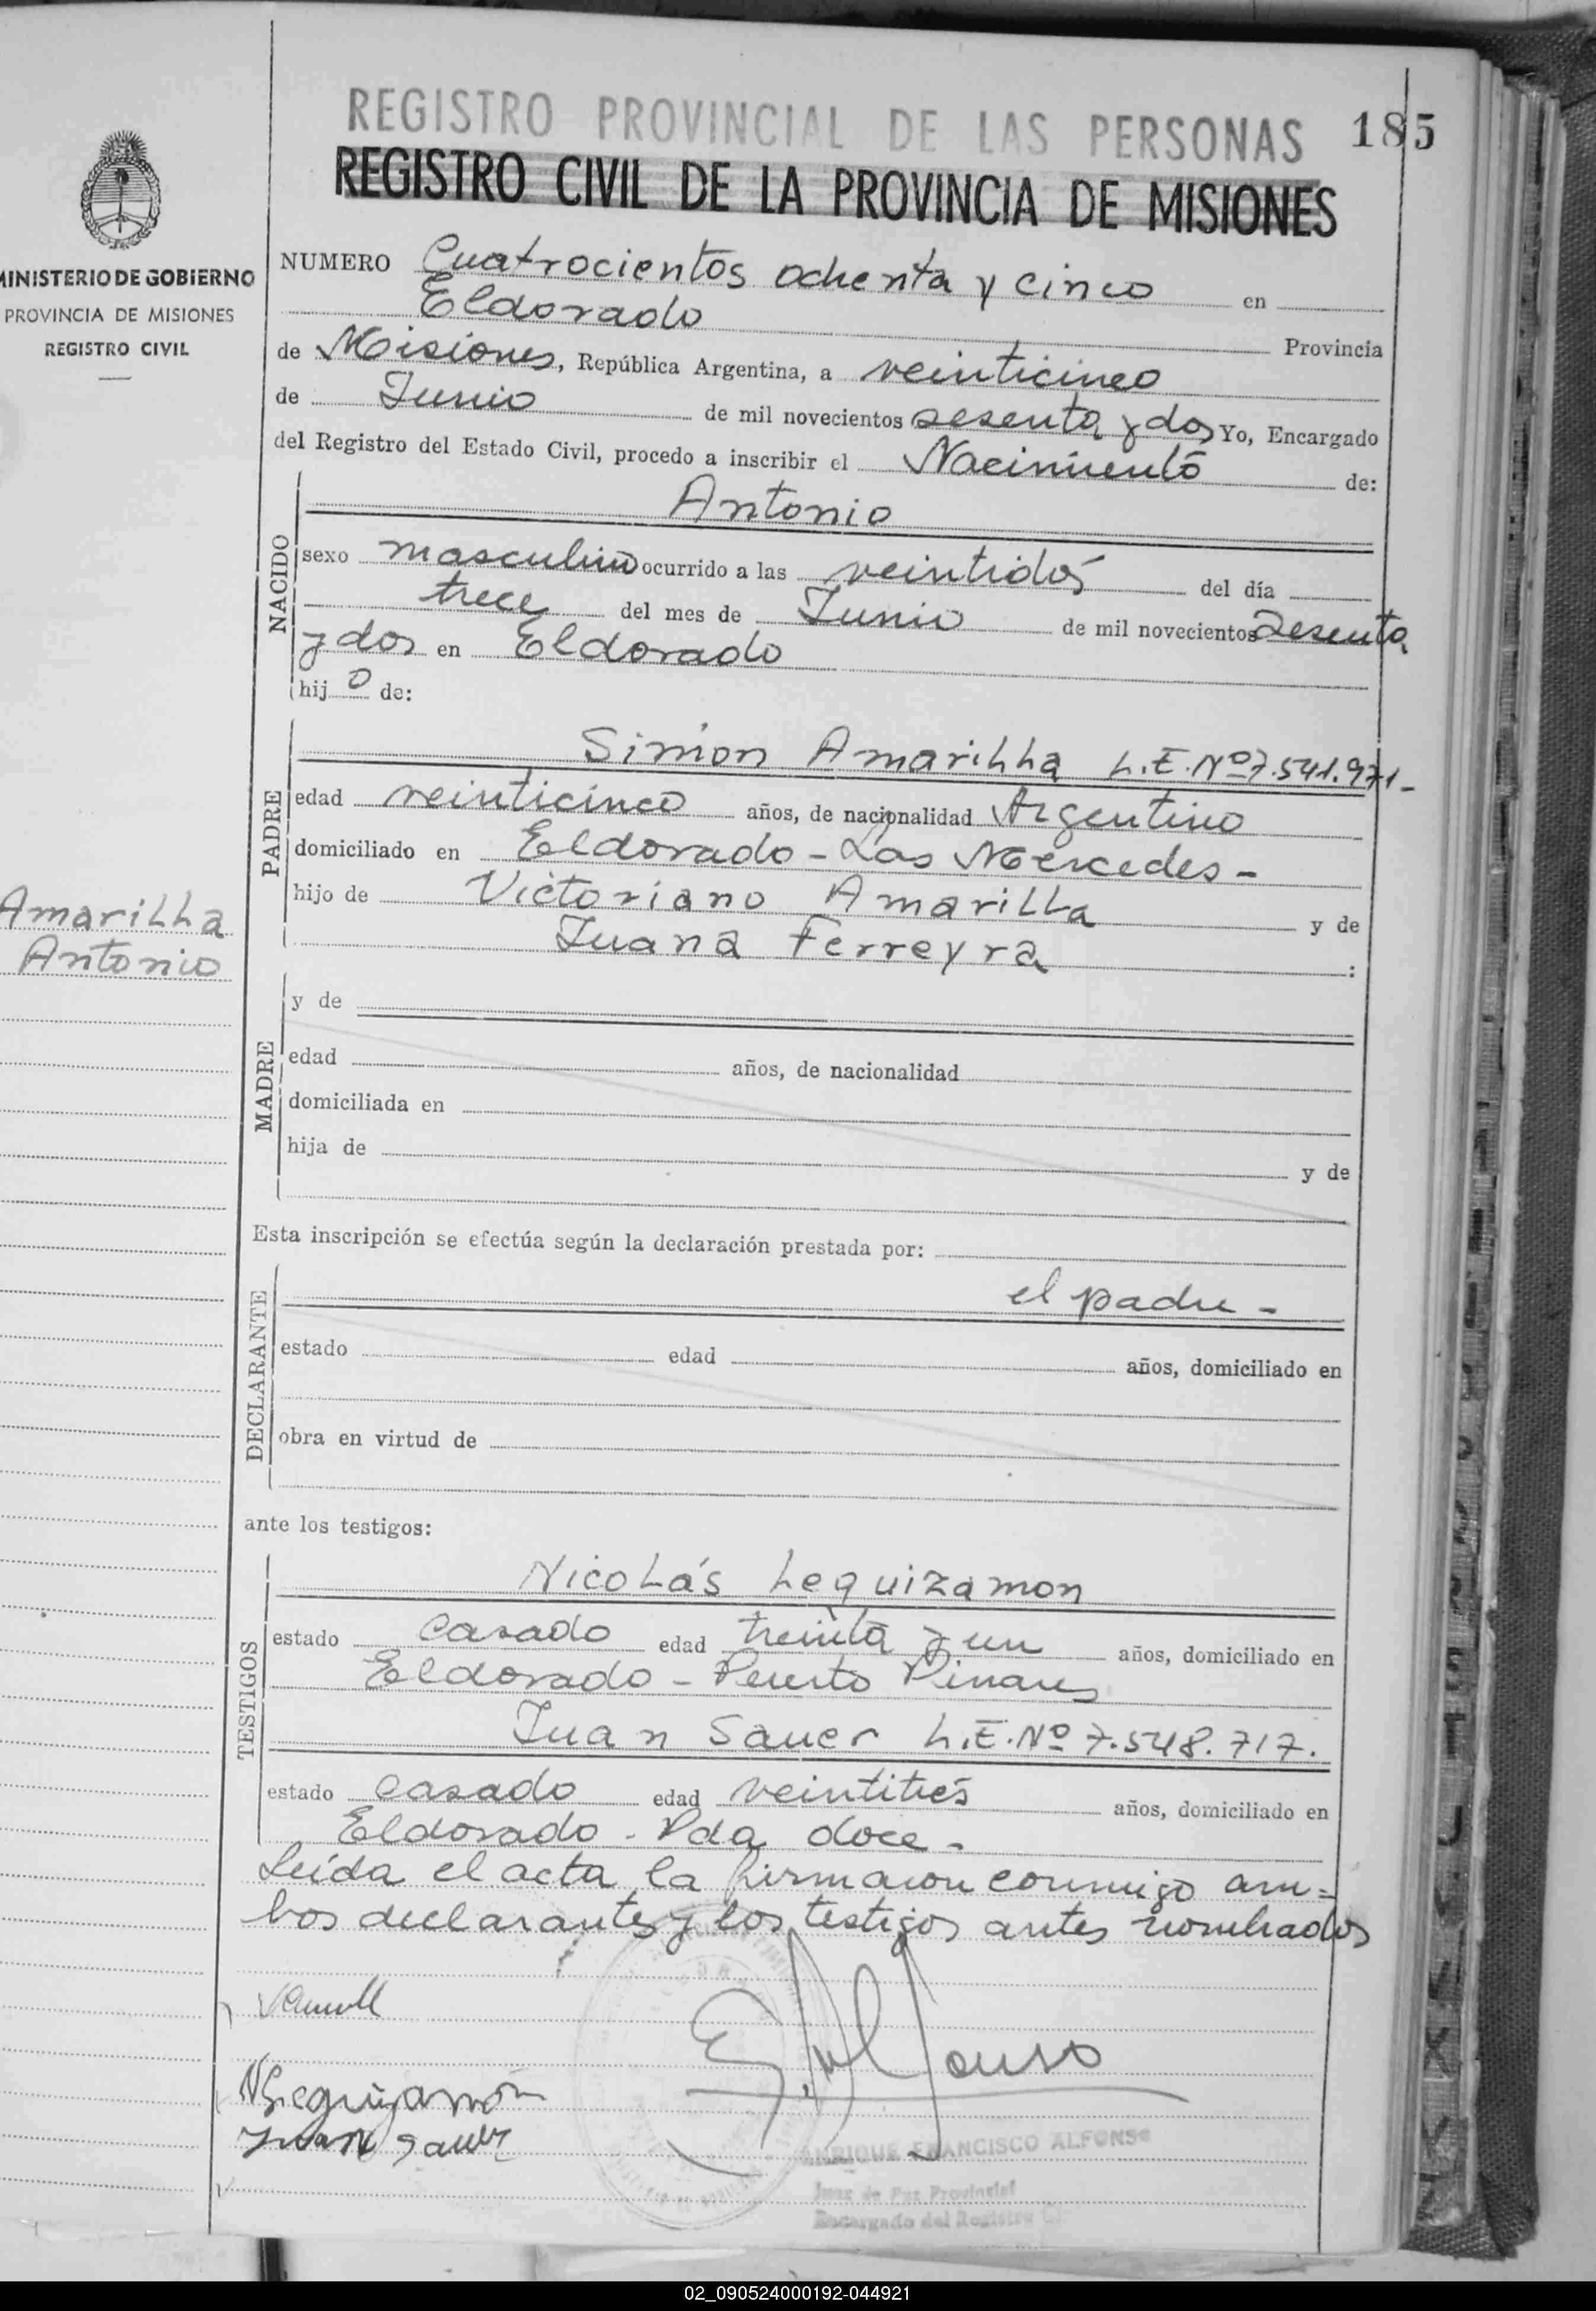 REGISTRO PROVINCIAL DE LAS PERSONAS 185
REGISTRO CIVIL DE LA PROVINCIA DE MISIONES
MINISTERIO DE GOBIERNO
PROVINCIA DE MISIONES
REGISTRO CIVIL
NUMERO Cuatrocientos ochenta y cinco en
Eldorado Provincia
de Misiones, República Argentina, a veinticinco
de Junio de mil novecientos sesenta y dos Yo, Encargado
del Registro del Estado Civil, procedo a inscribir el Nacimiento de:
NACIDO
Antonio
sexo masculino ocurrido a las veintidós del día
trece del mes de Junio de mil novecientos sesenta
y dos en Eldorado
hijo de:
PADRE
Simon Amarilla L.E. Nº 7.541.971-
edad veinticinco años, de nacionalidad Argentino
domiciliado en Eldorado - Las Mercedes -
hijo de Victoriano Amarilla y de
Juana Ferreyra :
Amarilla
Antonio
MADRE
y de
edad años, de nacionalidad
domiciliada en
hija de y de
Esta inscripción se efectúa según la declaración prestada por:
DECLARANTE
el padre -
estado edad años, domiciliado en
obra en virtud de
ante los testigos:
TESTIGOS
Nicolás Leguizamon
estado casado edad treinta y un años, domiciliado en
Eldorado - Puerto Pinares
Juan Sauer L.E. Nº 7.548.717.
estado casado edad veintitrés años, domiciliado en
Eldorado - Pda doce -
Leída el acta la firmaron conmigo am=
bos declarantes y los testigos antes nombrados
NLeguizamón
Juan Sauer
ENRIQUE FRANCISCO ALFONSO
Juez de Paz Provincial
Encargado del Registro C.
02_090524000192-044921